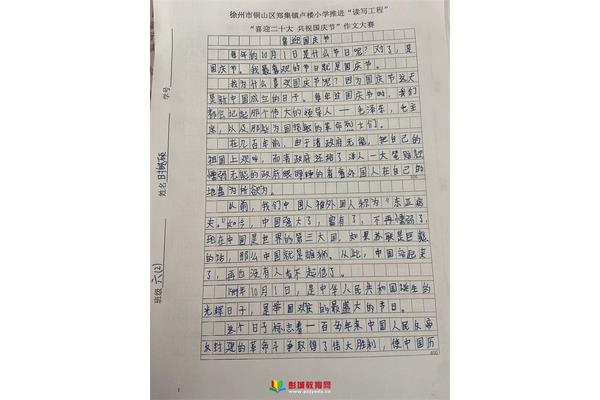 徐州市铜山区郑集镇卢楼小学推进“读写工程”
“喜迎二十大 共祝国庆节”作文大赛
喜迎国庆节
每年的10月1日是什么节日呢？对了，是
国庆节。我最喜欢的节日就是国庆节。
我为什么喜欢国庆节呢？因为国庆节这天
是新中国成立的日子。每年到国庆节时，我们
都会记起那个伟大的领导人——毛泽东，毛主
席，以及那些为国捐躯的革命烈士们。
在几百年前，由于清政府无能，把自己的
祖国上观，而清政府还给了洋人一大笔赔款
懦弱无能的政府眼睁睁的看着外国人在自己的
地盘为所欲为。
从前，我们中国人被外国人称为“东亚病
夫。”如今，中国强大了，富有了，不再懦弱了，
现在中国是世界的第三大国，如果苏联是巨龙
的话，那么中国就是雄狮。从此，中国站起来
了，再也没有人看不起他了。
1949年10月1日，是中华人民共和国诞生的
光辉日子，是举国欢庆的最盛大的节日。
这个日子标志着一百多年来中国人民反帝
反封建的革命斗争取得了伟大胜利，使中国历
400
学号
姓名
班级 六(2)
1
彭城教育网
www.pcjyedu.cn